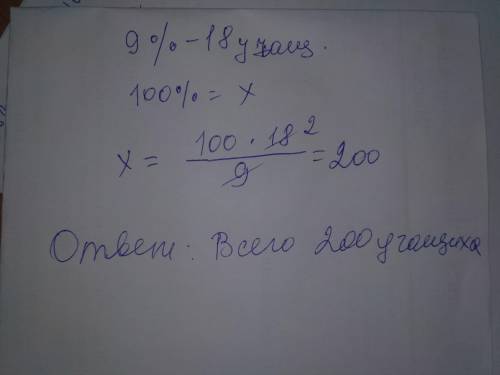 9% - 18 учащ.
100% = x
x = 100 · 18 2 / 9 = 200
Ответ: Всего 200 учащихся